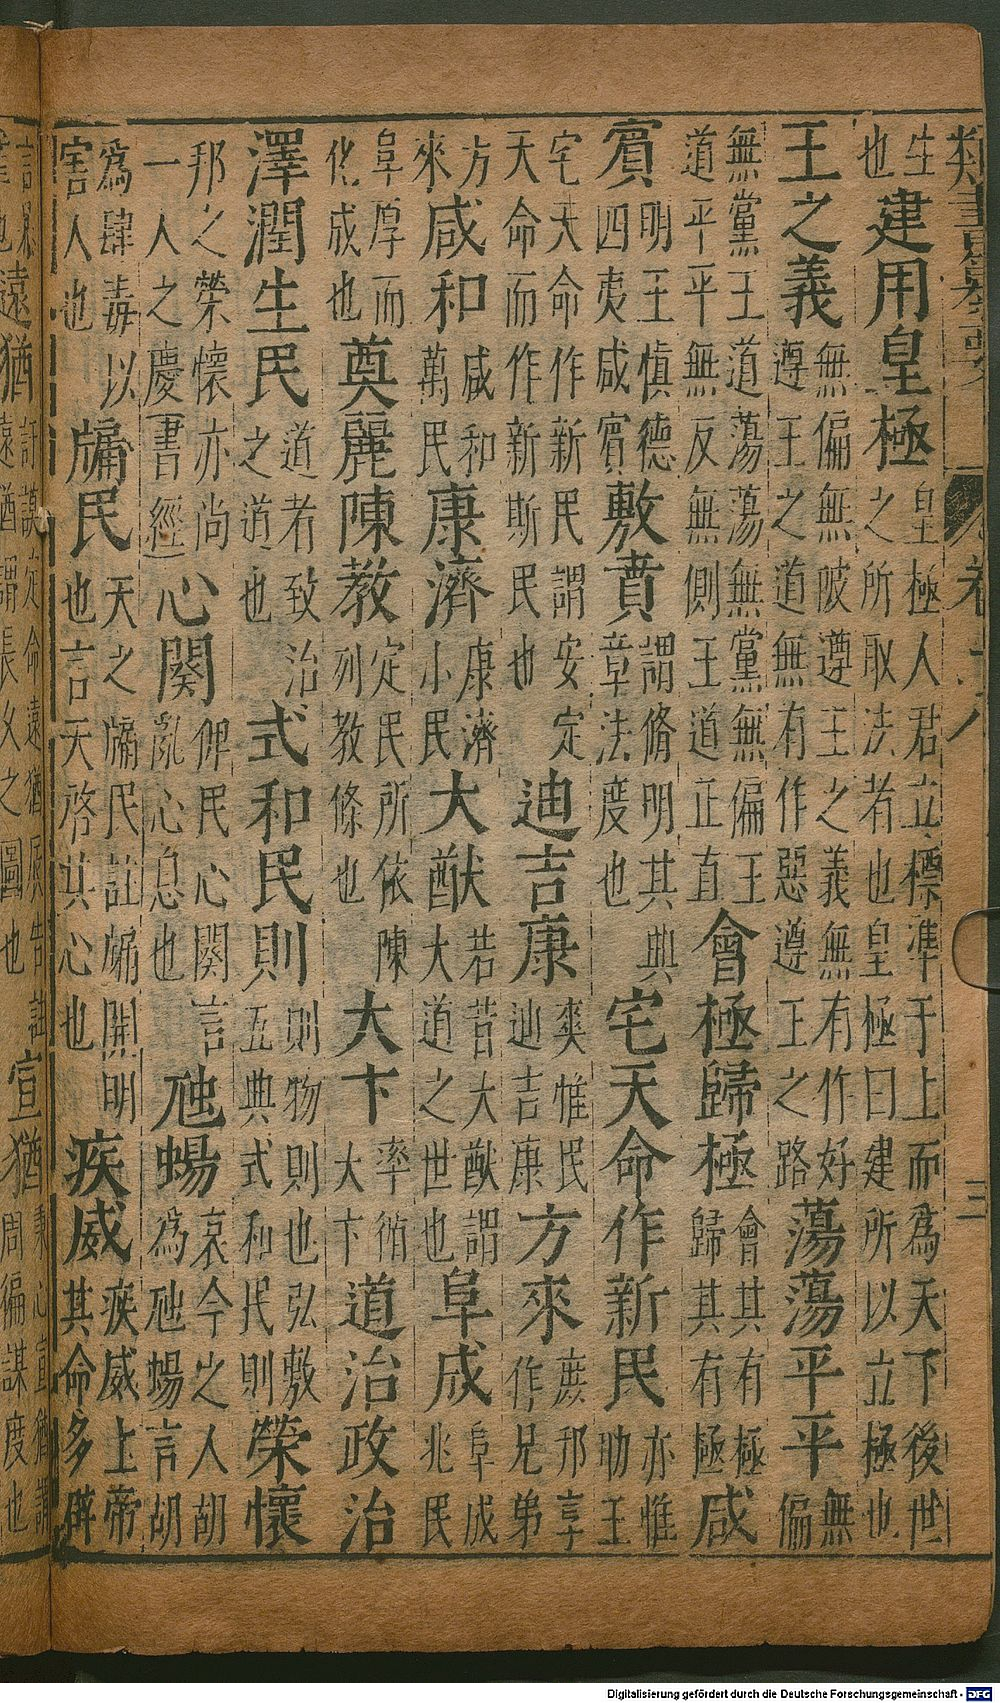 類書纂要
三
生也建用皇極皇極人君立標準于上而為天下後世之所取法者也皇極曰建所以立極也
王之義無偏無陂遵王之義無有作好遵王之道無有作惡遵王之路蕩蕩平平無偏
無黨王道蕩蕩無黨無偏王道平平無反無側王道正直會極歸極會其有極歸其有極咸
賓明王慎德四夷咸賓敷賁謂脩明其典章法度也宅天命作新民亦惟助王
宅天命作新民謂安定天命而作新斯民也迪吉康爽惟民迪吉康方來庶邦享作兄弟
方來咸和咸和萬民康濟康濟小民大猷若昔大猷謂大道之世也阜成阜成兆民
阜厚而化成也奠麗陳教定民所依陳列教條也大卞率循大卞道洽政治
澤潤生民道者致治之道也式和民則則物則也弘敷五典式和民則榮懷
邦之榮懷亦尚一人之慶書經心闋俾民心闋言亂心息也虺蜴哀今之人胡為虺蜴言胡
為肆毒以害人也牖民天之牖民註牖開明也言天啓其心也疾威疾威上帝其命多辟
遠猶訏謨定命遠猶辰告註遠猶謂長久之圖也宣猶秉心宣猶謂周徧謀度也